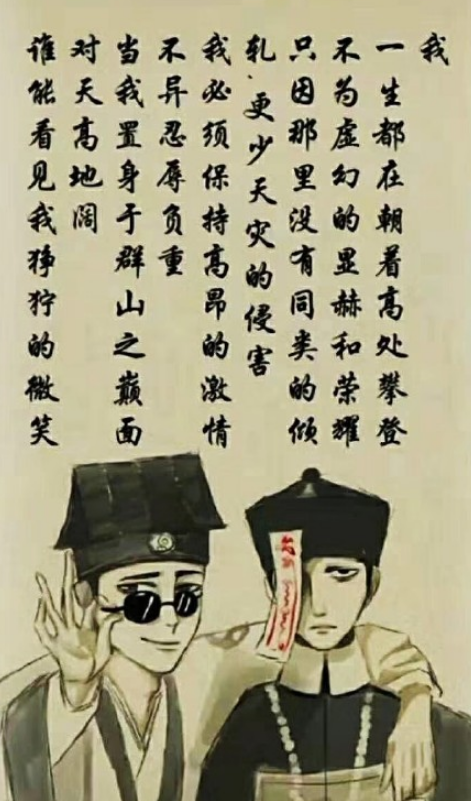 我
一生都在朝着高处攀登
不为虚幻的显赫和荣耀
只因那里没有同类的倾
轧.更少天灾的侵害
我必须保持高昂的激情
不异忍辱负重
当我置身于群山之巅面
对天高地阔
谁能看见我狰狞的微笑